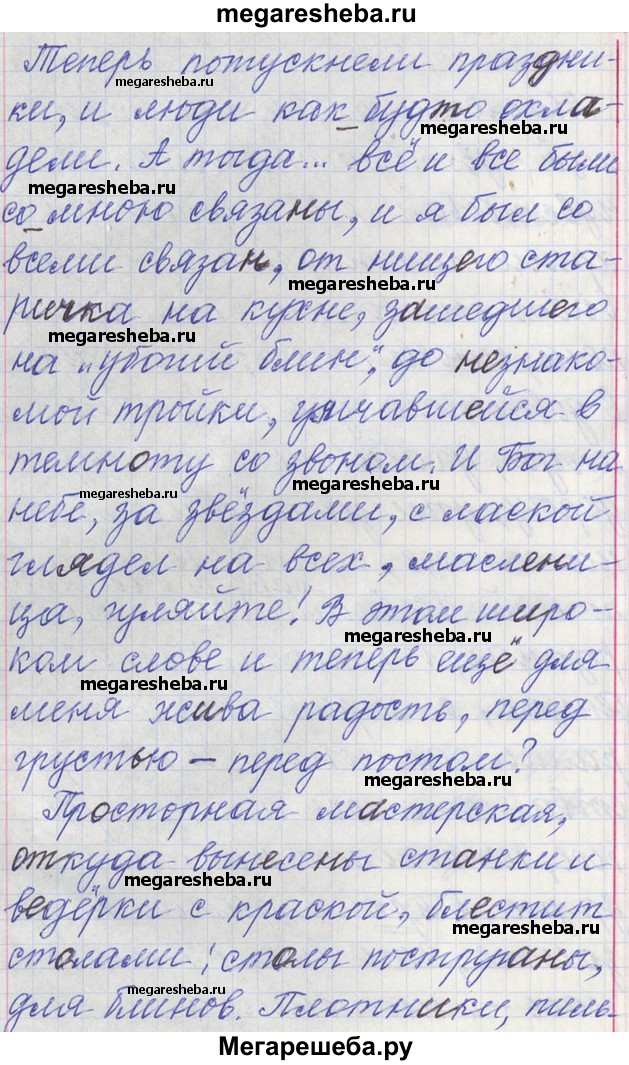 megaresheba.ru
Теперь потускнели праздни-
megaresheba.ru
ки, и люди как будто охла-
дели. А тогда... всё и все были
megaresheba.ru
со мною связаны, и я был со
всеми связан, от нищего ста-
megaresheba.ru
ричка на кухне, зашедшего
megaresheba.ru
на „убогий блин", до незнако-
мой тройки, умчавшейся в
темноту со звоном. И Бог на
megaresheba.ru
небе, за звёздами, с лаской
глядел на всех, маслени-
ца, гуляйте! В этом широ-
megaresheba.ru
ком слове и теперь ещё для
megaresheba.ru
меня жива радость, перед
грустью – перед постом?
megaresheba.ru
Просторная мастерская,
откуда вынесены станки и
megaresheba.ru
ведёрки с краской, блестит
megaresheba.ru
столами: столы поструганы,
megaresheba.ru
для блинов. Плотники, пиль-
Мегарешеба.ру